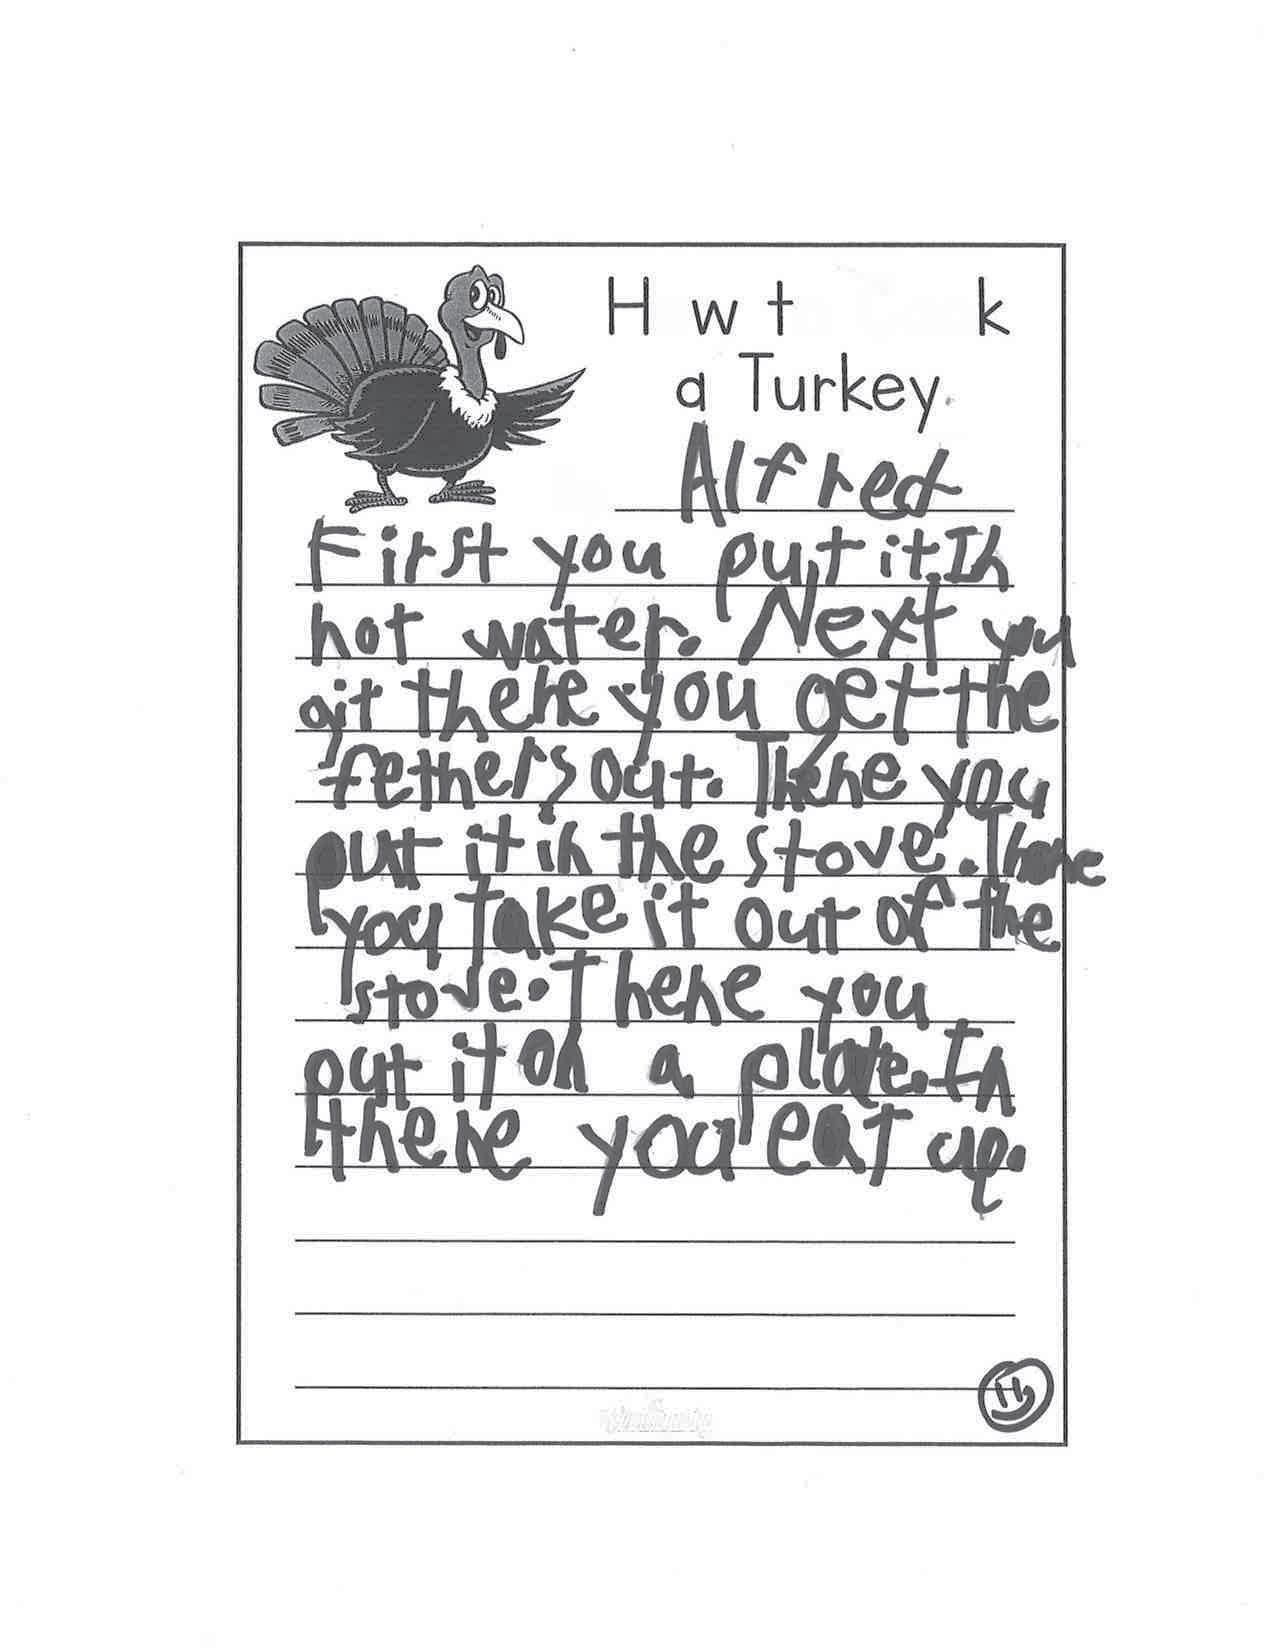 H w t k
a Turkey.
Alfred
First you put it In
hot water. Next you
git there you get the
fethers out. There you
put it in the stove. There
you Take it out of the
stove. There you
put it on a plate. In
there you eat up.